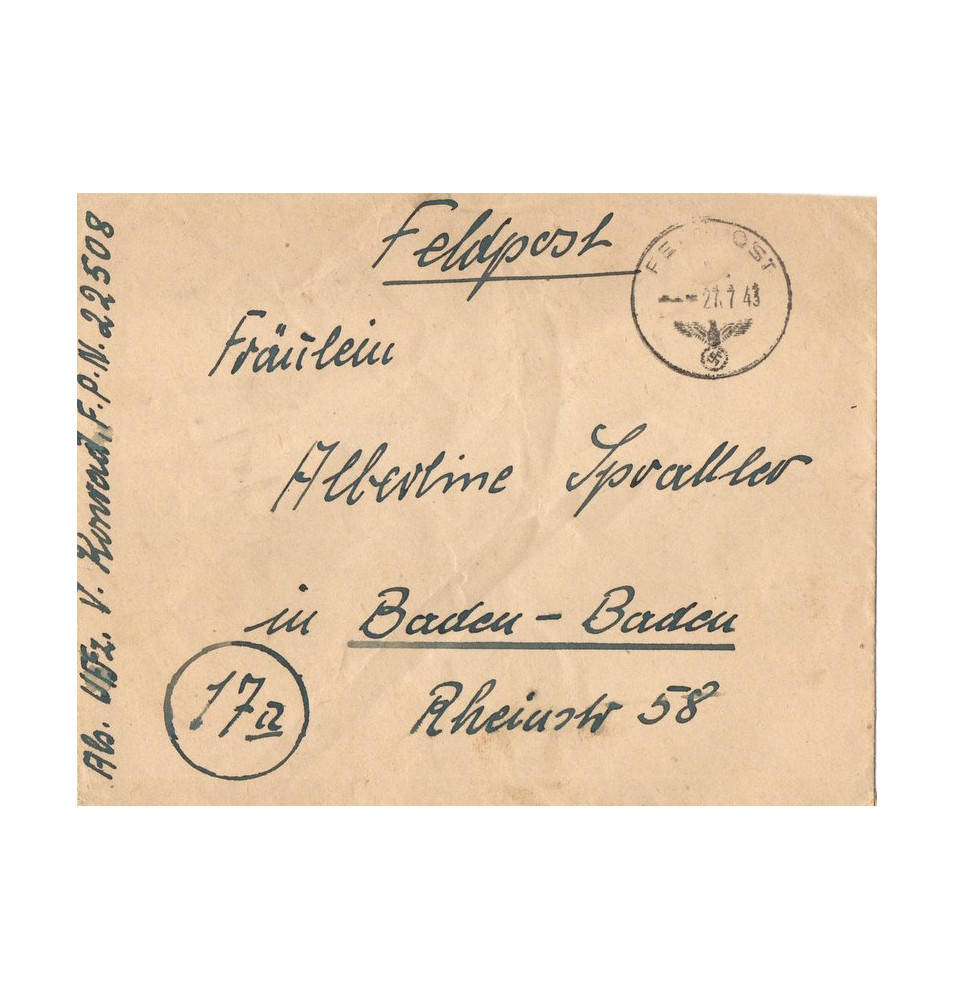 Feldpost
FELDPOST
27.7 43
Fräulein
Albertine Sprattler
in Baden-Baden
17a
Rheinstr 58
Abs. Uffz. V. Konrad, F.P.N. 22508